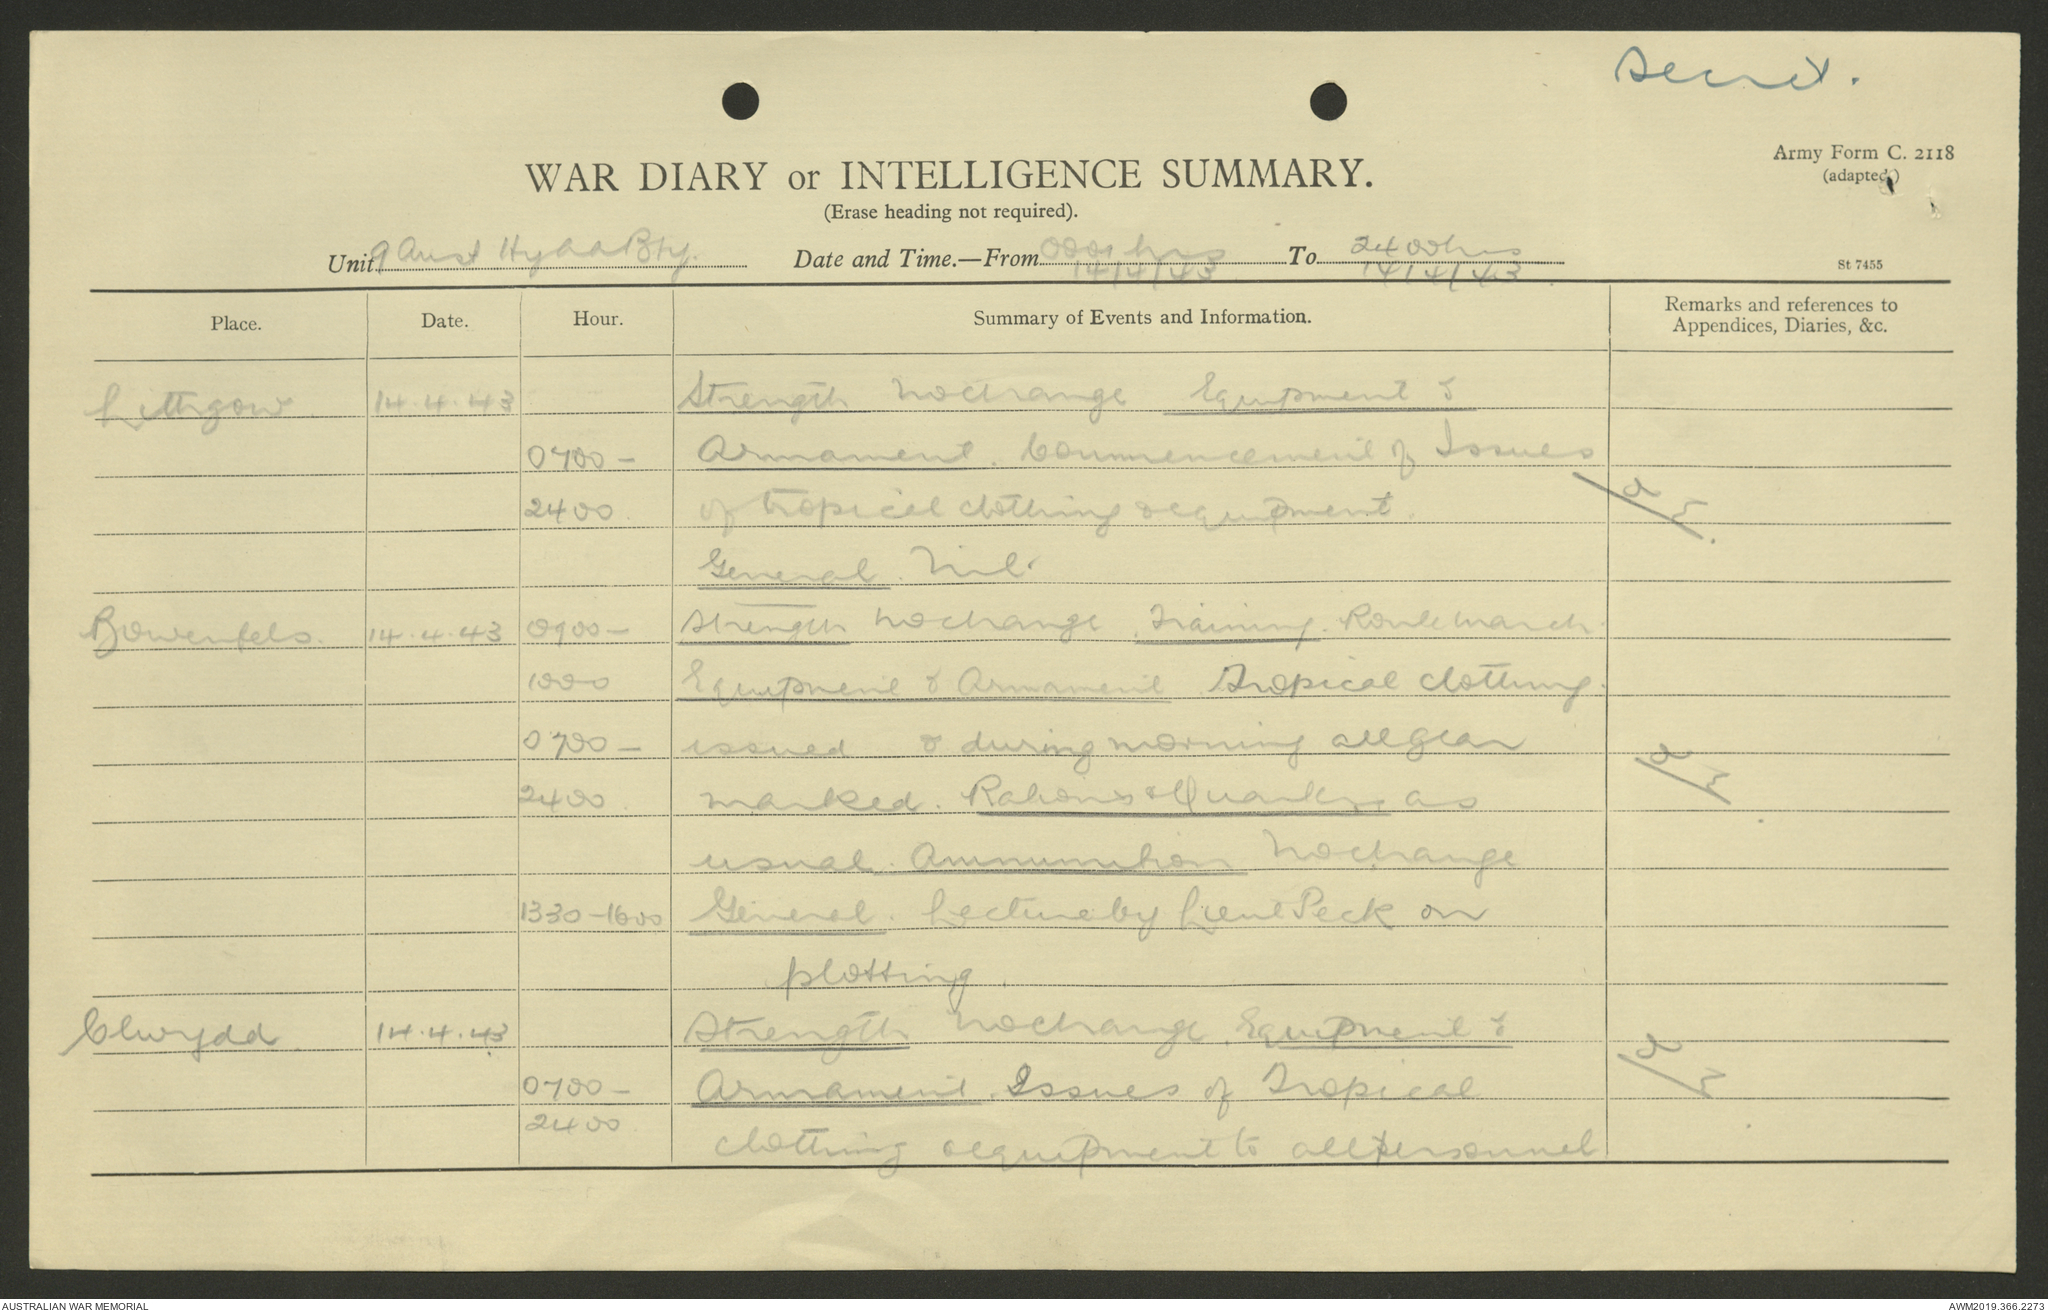 Secret.
Army Form C. 2118
(adapted)
WAR DIARY or INTELLIGENCE SUMMARY.
(Erase heading not required).
Unit 9 Aust Hy AA Bty. Date and Time.—From 0001 hrs 14/4/43 To 2400 hrs 14/4/43.
St 7455
Place. Date. Hour. Summary of Events and Information. Remarks and references to Appendices, Diaries, &c.
Lithgow. 14.4.43 Strength No change Equipment &
0700 - Armament. Commencement of Issues
2400. of tropical clothing & equipment.
General. Nil.
Bowenfels. 14.4.43 0900 - Strength No change. Training. Route March.
1000 Equipment & Armament Tropical clothing.
0700 - issued & during morning all gear
2400. marked. Rations & Quarters as
usual. Ammunition No change
1330-1600 General. Lecture by Lieut Peck on
plotting.
Clwydd. 14.4.43 Strength No change. Equipment &
0700 - Armament. Issues of Tropical
2400 clothing & equipment to all personnel
AUSTRALIAN WAR MEMORIAL
AWM2019.366.2273